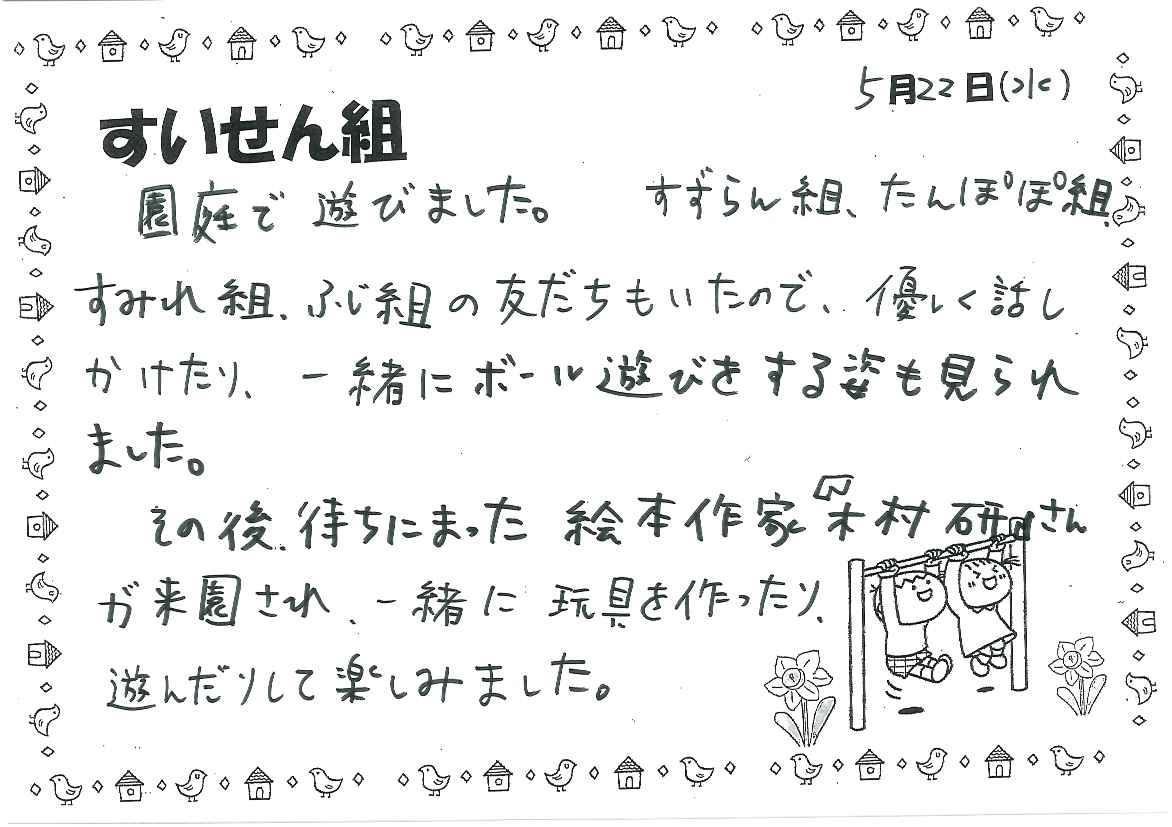 5月22日(水)
すいせん組
園庭で遊びました。 すずらん組、たんぽぽ組、
すみれ組、ふじ組の友だちもいたので、優しく話し
かけたり、一緒にボール遊びをする姿も見られ
ました。
その後、待ちにまった絵本作家木村研さん
が来園され、一緒に玩具を作ったり、
遊んだりして楽しみました。